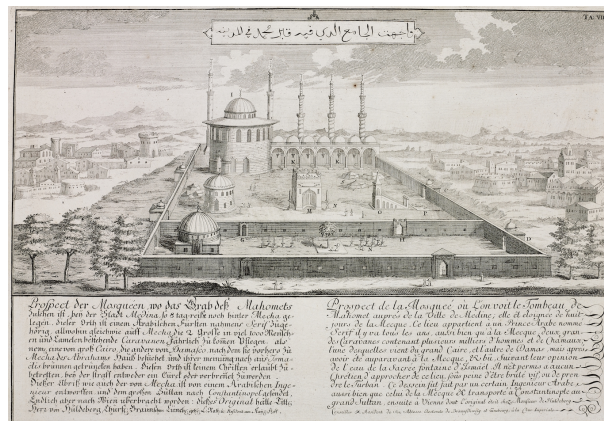 TA: VII
واجهت الجامع الذي فيه قبر محمد في المدينه
Prospect der Mosqueen, wo das Grab deß Mahomets
Zusehen ist, bey der Stadt Medina, so 8 tag reise noch hinter Mecha ge-
legen. dieser Orth ist einem Arabischen Fürsten nahmens Serif Zuge-
hörig, allwohin gleichwie auff Mecha die 2 Grosse in viel tausend Mensche-
n und Camelen bestehende Caravanen Jährlich Zu kommen Pflegen. als
eine von groß Cairo, die andere von Damasco, nach dem sie vorhero Zu
Mecha des Abrahams Hauß besuchet und ihrer meinung nach aus Isma-
elis brünnen getruncken haben. Disen Orth ist keinem Christen erlaubt Zu-
betretten, bey der straff entweder ein Turck oder verbrent Zuwerden
Dieser Abriß wie auch der von Mecha ist von einem Arabischen Inge-
nieur entworffen und dem großen Sultan nacher Constantinopel gesendet,
Endlich aber nach Wien überbracht worden: dieses Original hatte Titl:
Herr von Huldeberg, Churfl: Braunschw:
Prospect de la Mosquée, où l'on voit le Tombeau de
Mahomet aupres de la Ville de Medine; elle est eloignée de huit
jours de la Mecque. Ce lieu appartient a un Prince Arabe nommé
Serif, il y va tous les ans, aussi bien qu'à la Mecque, deux gran-
des Caravanes contenant plusieurs milliers d'hommes et de Chameaux
l'une desquelles vient du grand Caire, et l'autre de Damas; mais apres
avoir été auparavant à la Mecque, et bû suivant leur opinion
de l'eau de la sacrée fontaine d'Ismael. Il n'est permis a aucun
Chretien d'approcher de ce lieu, sous peine d'être brulé vif, ou de pren-
dre le Turban. Ce dessein fut fait par un certain Ingenieur Arabe,
aussi bien que celui de la Mecque, et transporté à Constantinople au
grand Sultan, ensuite à Vienne